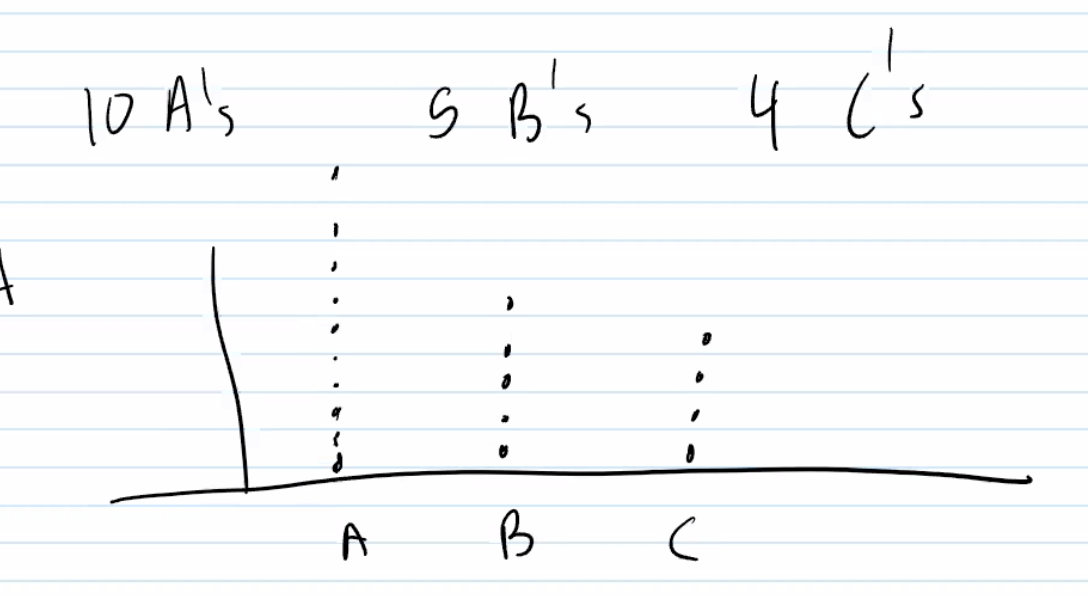 10 A's 5 B's 4 C's
A B C